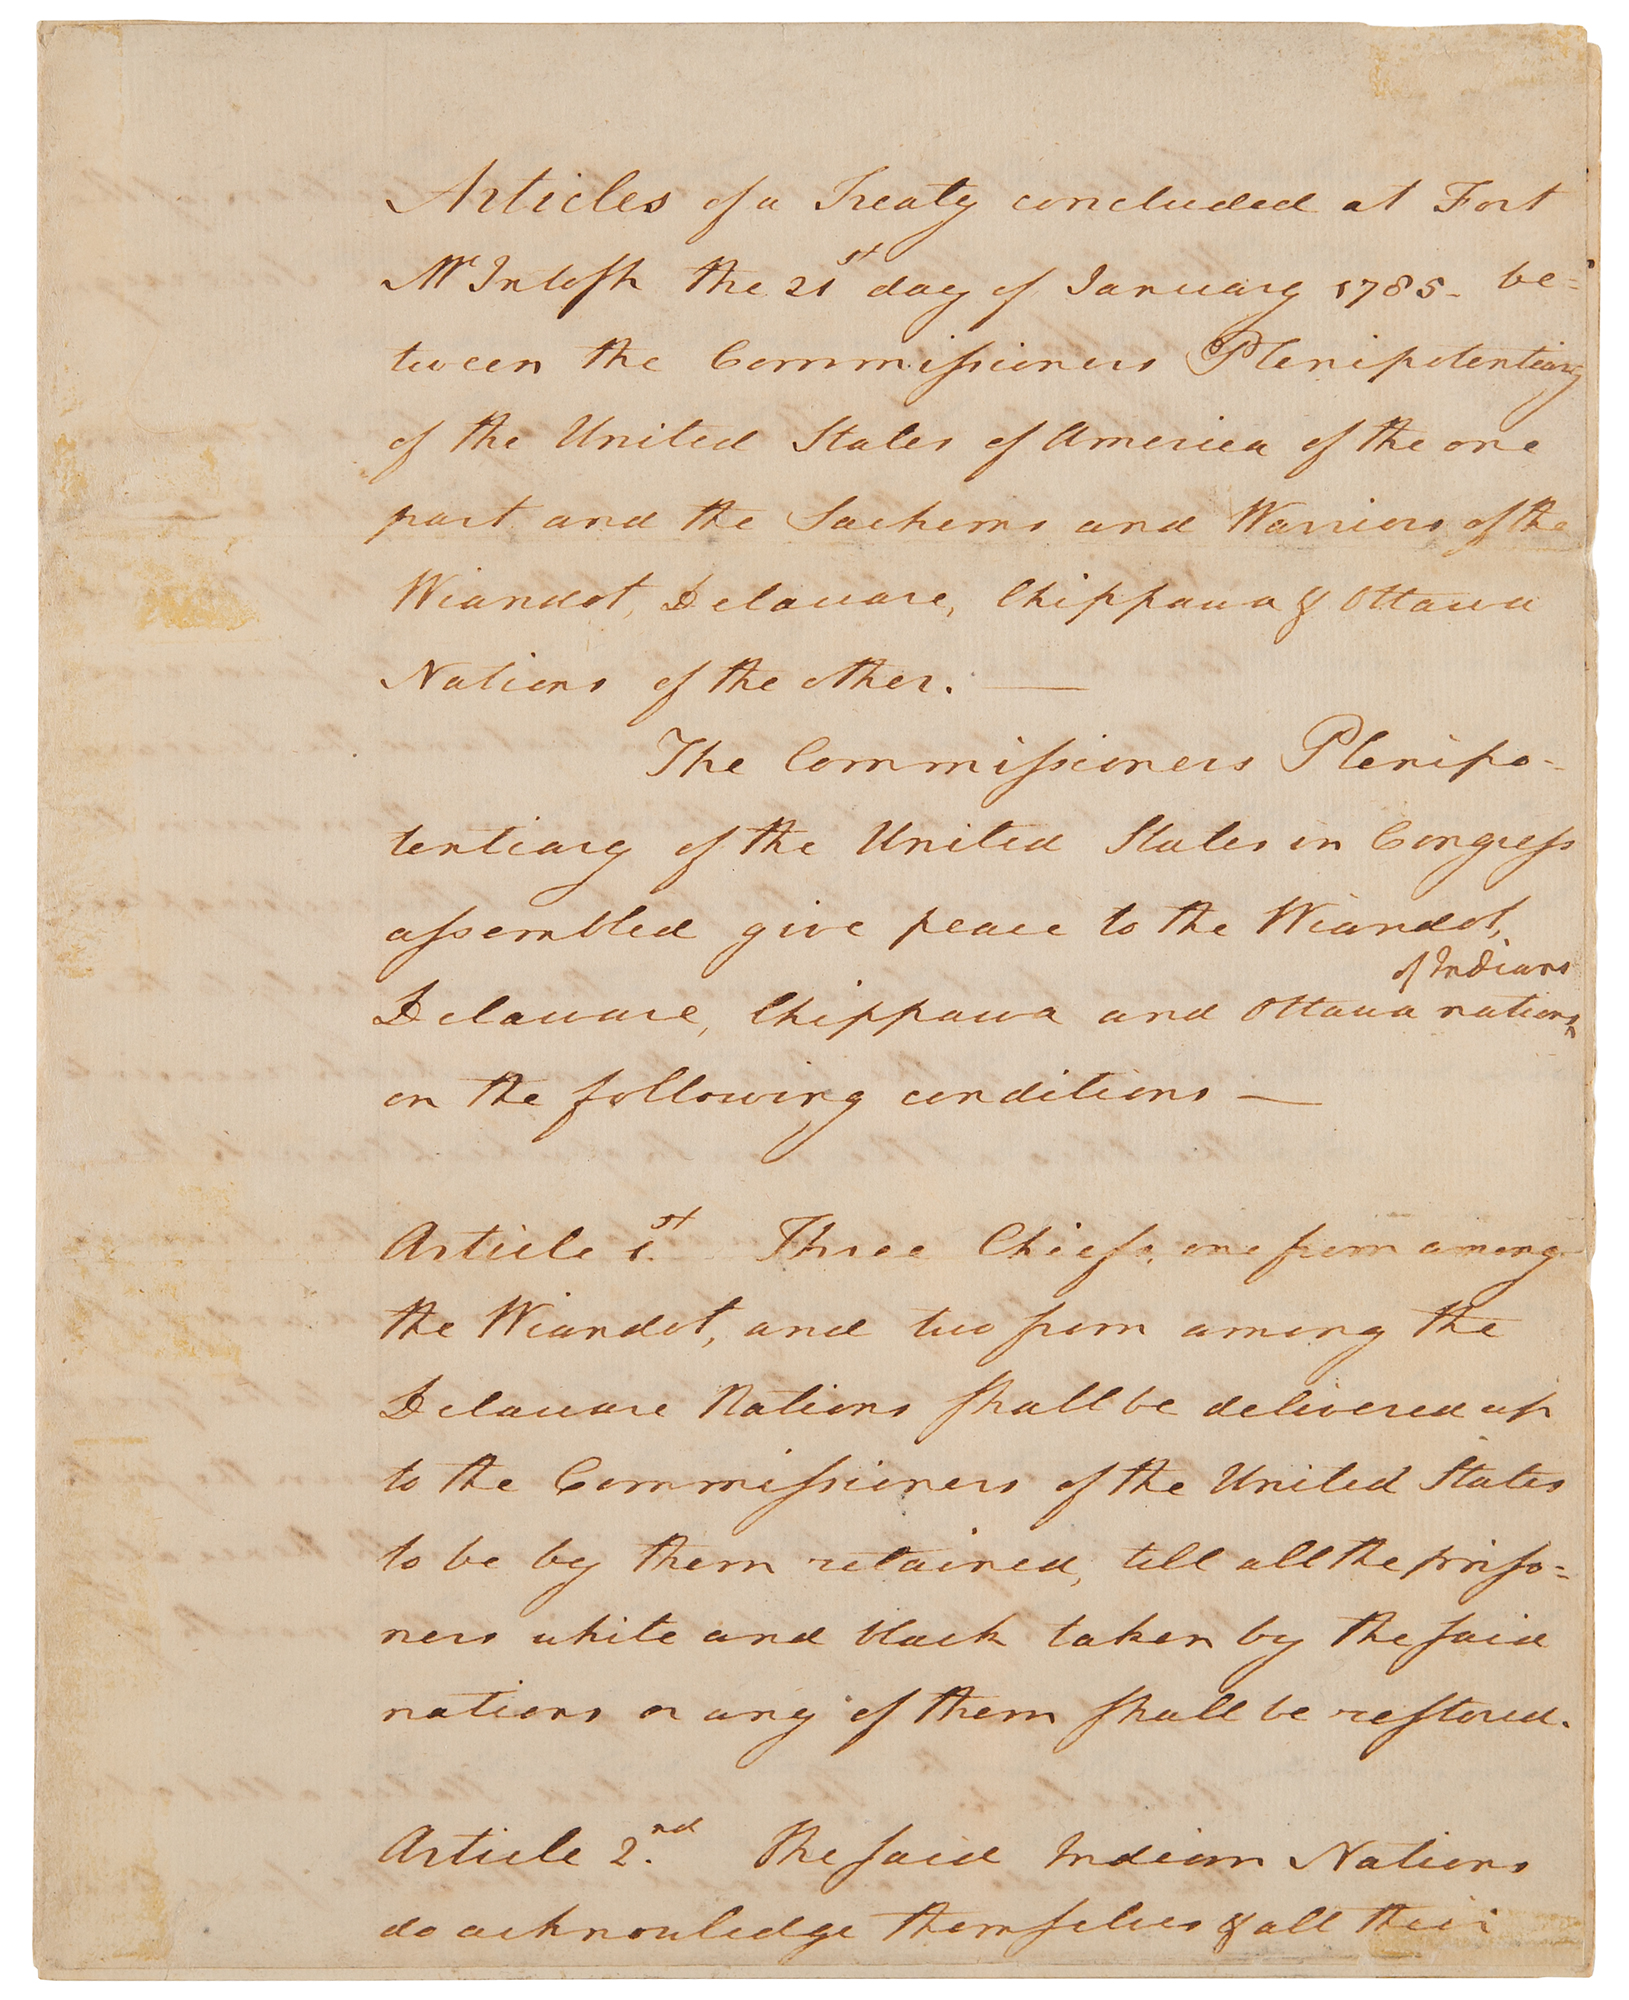 Articles of a Treaty concluded at Fort
McIntosh the 21st day of January 1785- be=
tween the Commissioners Plenipotentiary
of the United States of America of the one
part and the Sachems and Warriors of the
Wiandot, Delaware, Chippawa & Ottawa
Nations of the other. —
The Commissioners Plenipo-
tentiary of the United States in Congress
assembled give peace to the Wiandot,
of Indians
Delaware, Chippawa and Ottawa nations ^
on the following conditions —
Article 1.st Three Chiefs, one from among
the Wiandot, and two from among the
Delaware Nations shall be delivered up
to the Commissioners of the United States
to be by them retained, till all the priso=
ners white and black taken by the said
nations or any of them shall be restored.
Article 2.nd The said Indian Nations
do acknowledge themselves & all their